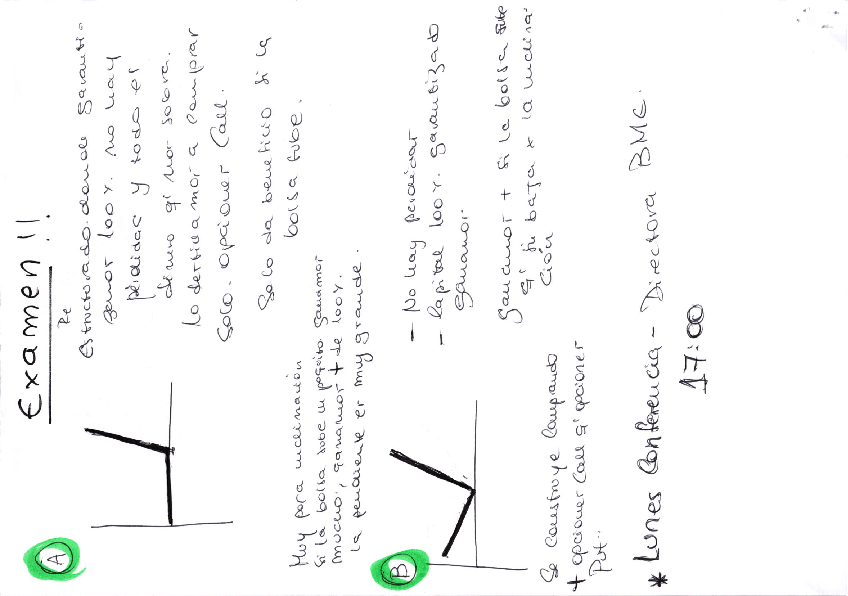 Examen!!
A
Re
Estructurado donde garanti-
zamos 100%. no hay
pérdidas y todo el
dinero q' nos sobra.
lo destinamos a comprar
solo. opciones Call.
Solo da beneficio si la
bolsa sube.
Muy para inclinación
Si la bolsa sube un poquito ganamos
mucho, ganamos + de 100%.
la pendiente es muy grande.
B
- No hay perdidas
- Capital 100%. garantizado
ganamos
ganamos + si la bolsa sube
q' si baja x la inclina-
ción
Se construye comprando
+ opciones Call q' opciones
Put..
* Lunes Conferencia - Directora BME.
17:00